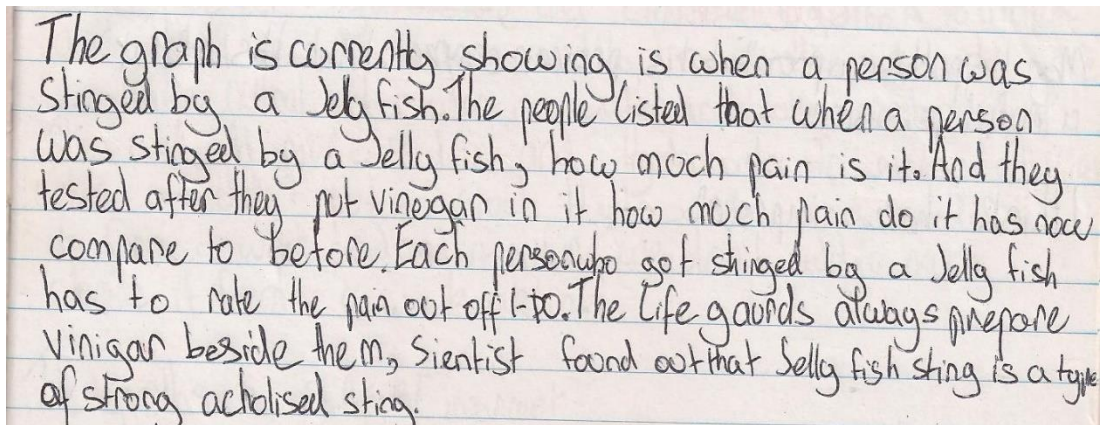 The graph is corrently showing is when a person was
Stinged by a Jely fish. The people listed that when a person
was stinged by a Jelly fish, how moch pain is it. And they
tested after they put vinegar in it how much pain do it has now
compare to before. Each person who got stinged by a Jelly fish
has to rate the pain out off 1-10. The Life gaurds always prepare
vinigar beside them, Sientist found out that Jelly fish sting is a type
of strong acholised sting.